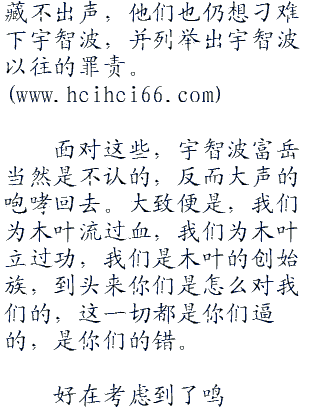 藏不出声，他们也仍想刁难
下宇智波，并列举出宇智波
以往的罪责。
(www.hcihci66.com)
面对这些，宇智波富岳
当然是不认的，反而大声的
咆哮回去。大致便是，我们
为木叶流过血，我们为木叶
立过功，我们是木叶的创始
族，到头来你们是怎么对我
们的，这一切都是你们逼
的，是你们的错。
好在考虑到了鸣